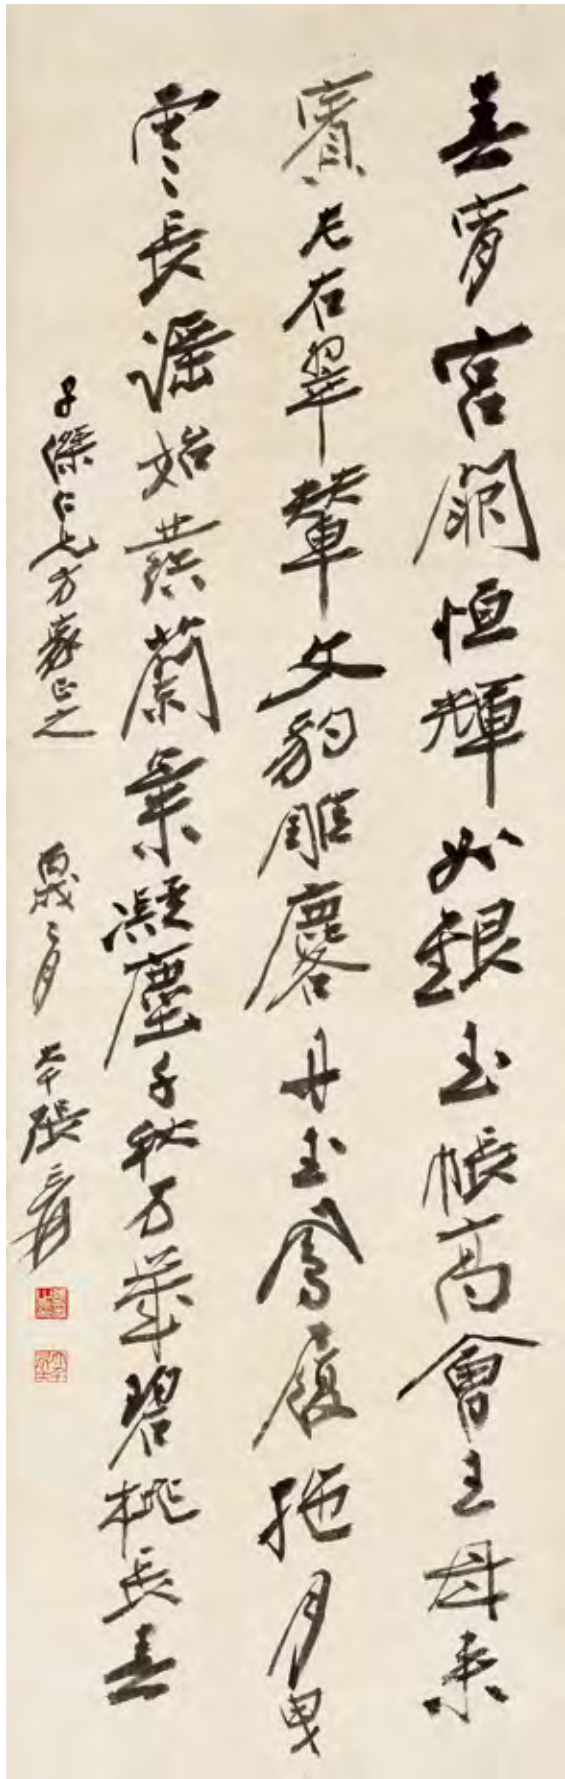 春宵宮闕恒輝銀玉帳高會王母來
賓左右翠輦文豹雕麐丹玉鳳履拖月曳
雲長謠始蘭凝塵千秋万歲碧桃長春
子傑仁兄方家正之 丙戌二月 大千張爰